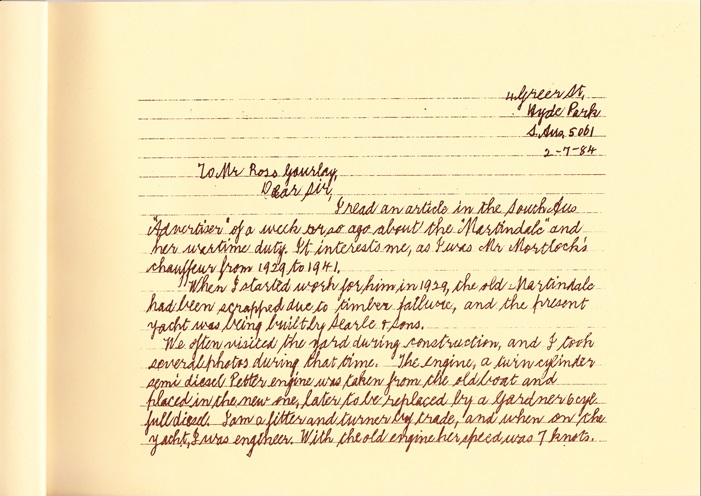 4 Greer St,
Hyde Park
S. Aus. 5061
2-7-84
To Mr Ross Gourlay,
Dear Sir,
I read an article in the South Aus
"Advertiser" of a week or so ago about the "Martindale" and
her wartime duty. It interests me, as I was Mr Mortlock's
chauffeur from 1929 to 1941.
When I started work for him in 1929, the old Martindale
had been scrapped due to timber failure, and the present
yacht was being built by Searle & Sons.
We often visited the yard during construction, and I took
several photos during that time. The engine, a twin cylinder
semi diesel Petter engine was taken from the old boat and
placed in the new one, later to be replaced by a Gardner 6 cyl
full diesel. I am a fitter and turner by trade, and when on the
yacht, I was engineer. With the old engine her speed was 7 knots.